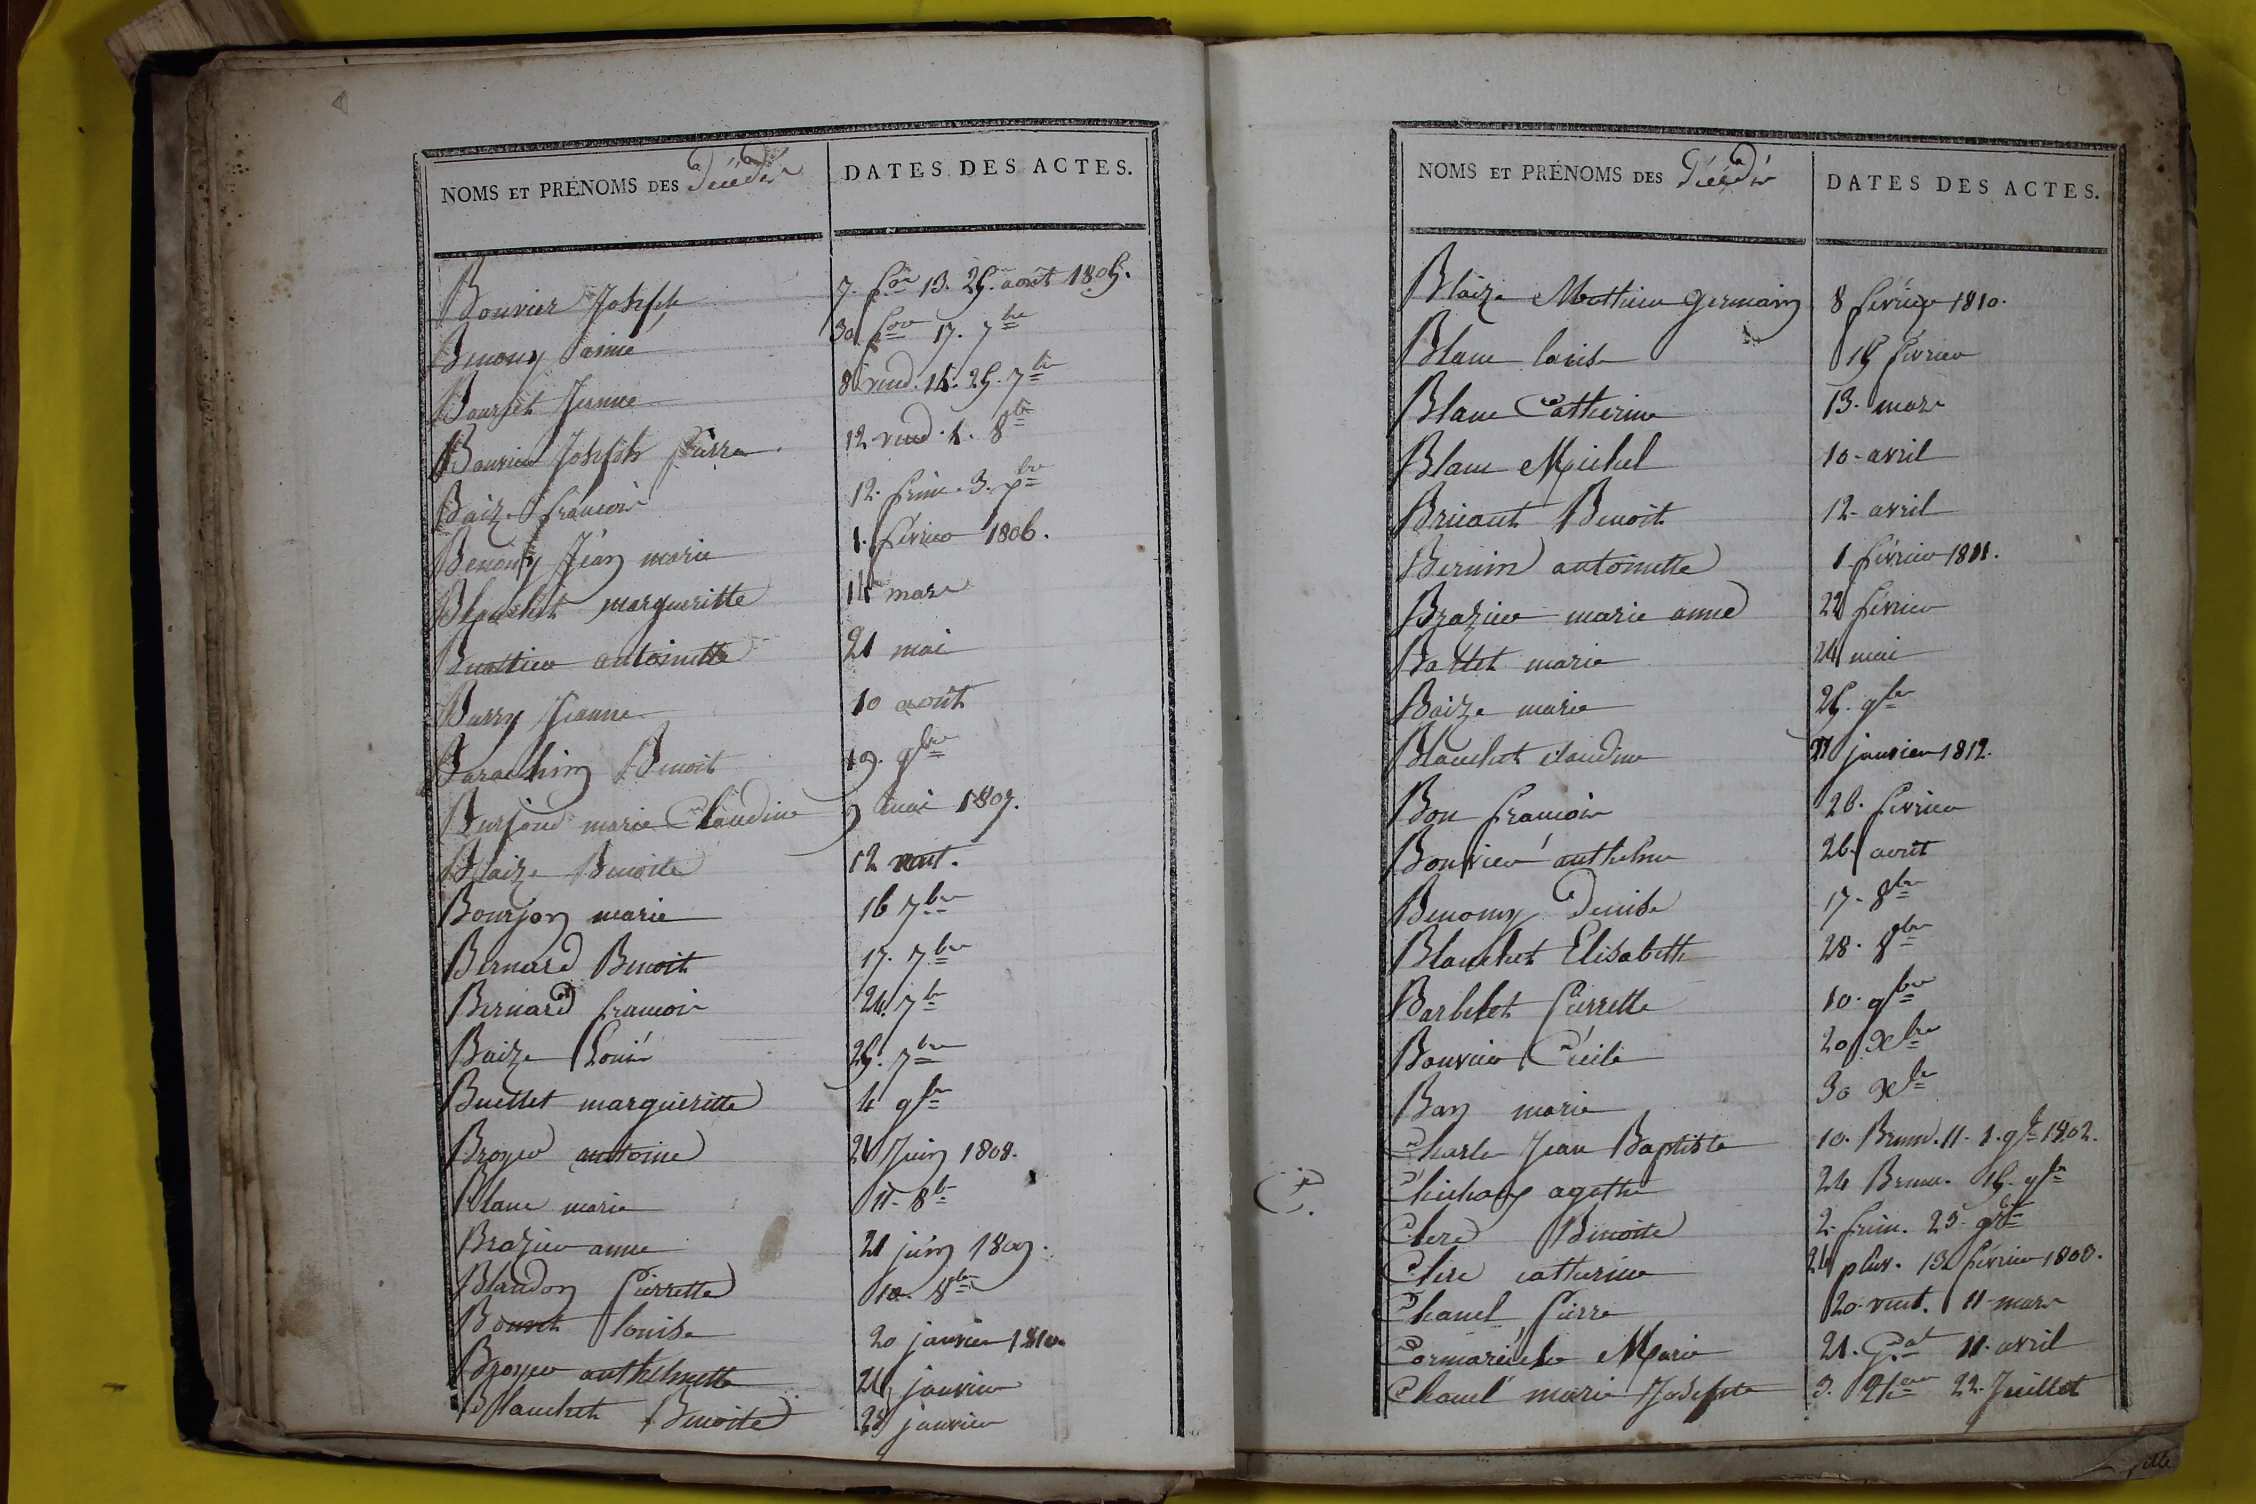 NOMS ET PRÉNOMS DES Décédés DATES DES ACTES.
Bouvier Joseph 7. f.or 13. 25. août 1805.
Benony aimé 30 f.or 17. 7bre
Bourset Jeanne 8 vend. 14. 25. 7bre
Bouvier Joseph Pierre 12 vend. 4. 8bre
Baize francois 12. frim. 3. xbre
Benony Jean marie 1. février 1806.
Blanchet margueritte 14 mars
antoinette 21 mai
Jeanne 10 août
Barachin Benoit 19. 9bre
marie Claudine 9 mai 1807.
Blaize Benoite 12 aout.
Bourjon marie 16 7bre
Bernard Benoit 17. 7bre
Bernard francois 24. 7bre
Baize Louis 25. 7bre
Buettet margueritte 4 9bre
Broyer antoine 21 Juin 1808.
Blanc marie 11. 8bre
Brazier anne 21 juin 1809.
Blandon Pierrette 10. 8bre
louise 20 janvier 1810
Broyer anthelmette 24 janvier
Blanchet Benoite 28 janvier
NOMS ET PRÉNOMS DES Décédés DATES DES ACTES.
Blaize Mathieu germain 8 février 1810.
Blanc louise 15 février
Blanc Catherine 13. mars
Blanc Michel 10. avril
Bruant Benoit 12. avril
Bernin antoinette 1 février 1811.
Brazier marie anne 22 février
Battet marie 24 mai
Baize marie 25. 9bre
Blanchet claudine 21 janvier 1812.
Bon francois 26. fevrier
Bouvier anthelme 26. août
Benony Denise 17. 8bre
Blanchet Elisabeth 28. 8bre
Barbelet Pierrette 10. 9bre
Bouvier Cécile 20 Xbre
Bay marie 30 Xbre
C.
Charle Jean Baptiste 10. Brum. 11. 1. 9bre 1802.
agathe 24 Brum. 15. 9bre
Clerc Benoite 2. frim. 23. 9bre
Clerc catherine 24 pluv. 13 février 1803.
Chanel Pierre 20. vent. 11 mars
Marie 21. G.al 11. avril
Chanel marie Josephte 3. 22. Juillet